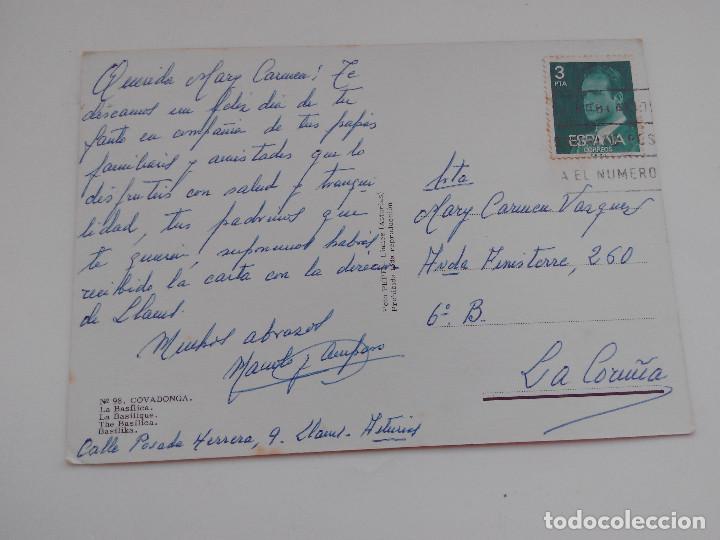 Querida Mary Carmen! Te
deseamos un feliz día de tu
Santo en compañía de tus papás
familiares y amistades que lo
disfruteis con salud y tranqui
lidad, tus padrinos que
te quieren, suponemos habrás
recibido la carta con la direcc
de Llanes.
Muchos abrazos
Manolo y Amparo
Nº 98. COVADONGA.
La Basílica.
La Basilique.
The Basilica.
Basilika.
Calle Posada Herrera, 9. Llanes - Asturias
Foto PEPE. Llanes (Asturias)
Prohibida toda reproducción
3
PTA
ESPAÑA
CORREOS
A EL NUMERO
Srta
Mary Carmen Vazquez
Avda Finisterre, 260
6º. B.
La Coruña
todocoleccion
todocoleccion.net